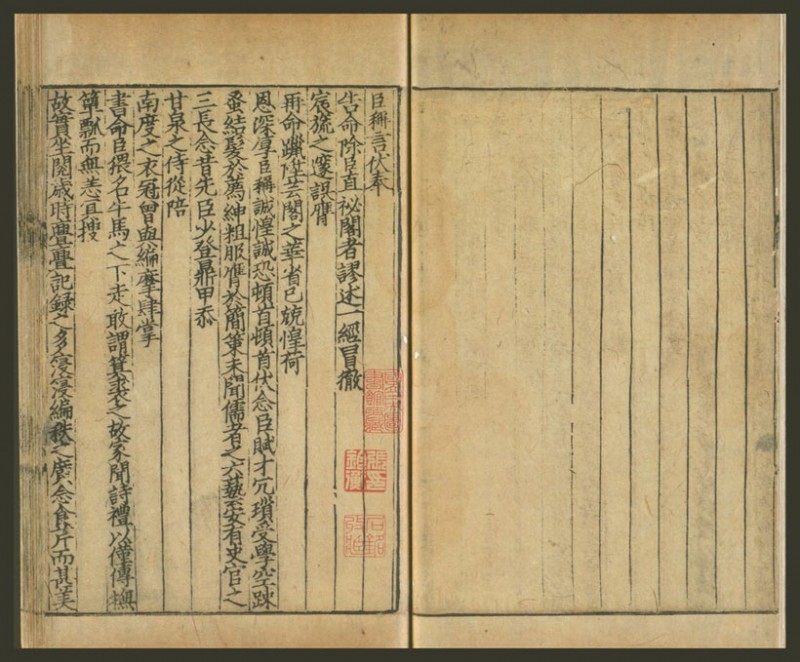 臣稱言伏奉
告命除臣直祕閣者謬述一經冒徹
宸旒之邃誤膺
再命躐陞芸閣之華省已兢惶荷
恩深厚臣稱誠惶誠恐頓首頓首伏念臣賦才冗瑣受學空踈
蚤結髮於薦紳粗服膺於簡策未聞儒者之六藝安有史官之
三長念昔先臣少登鼎甲忝
甘泉之侍從陪
南度之衣冠曾與編摩肆掌
書命臣猥名牛馬之下走敢謂箕裘之故家聞詩禮以僅傳撫
簞瓢而無恙宜搜
故實坐閱歲時亹亹記録之多寖寖編秩之廣念食芹而甚美